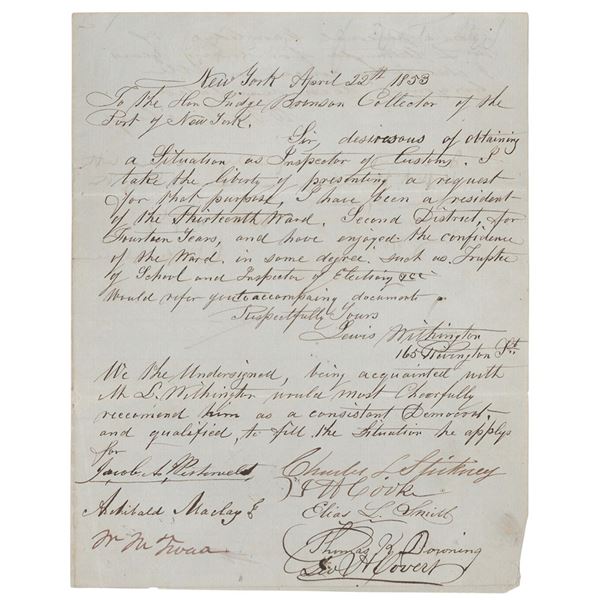 New York April 22th 1853
To the Hon Judge Bronson Collector of the
Port of New York.
Sir, desireous of obtaining
a Situation as Inspector of Customs. I
take the liberty of presenting a request
for that purpose, I have been a resident
of the Thirteenth Ward. Second District, for
Fourteen Years, and have enjoyed the confidence
of the Ward in some degree. such as. Trustee
of School and Inspector of Elections &c
Would refer you to accompaing documents.
Respectfully Yours
Lewis Withington
165 Rivington St
We the Undersigned, being acquainted with
Mr L. Withington would most Cheerfully
reccomend him as a consistant Democrat,
and qualified, to fill the Situation he applys
for
Jacob A.
Charles L
J H Cooke
Archibald Maclay
Elias L. Smith
Wm M
Thomas K Downing
Covert